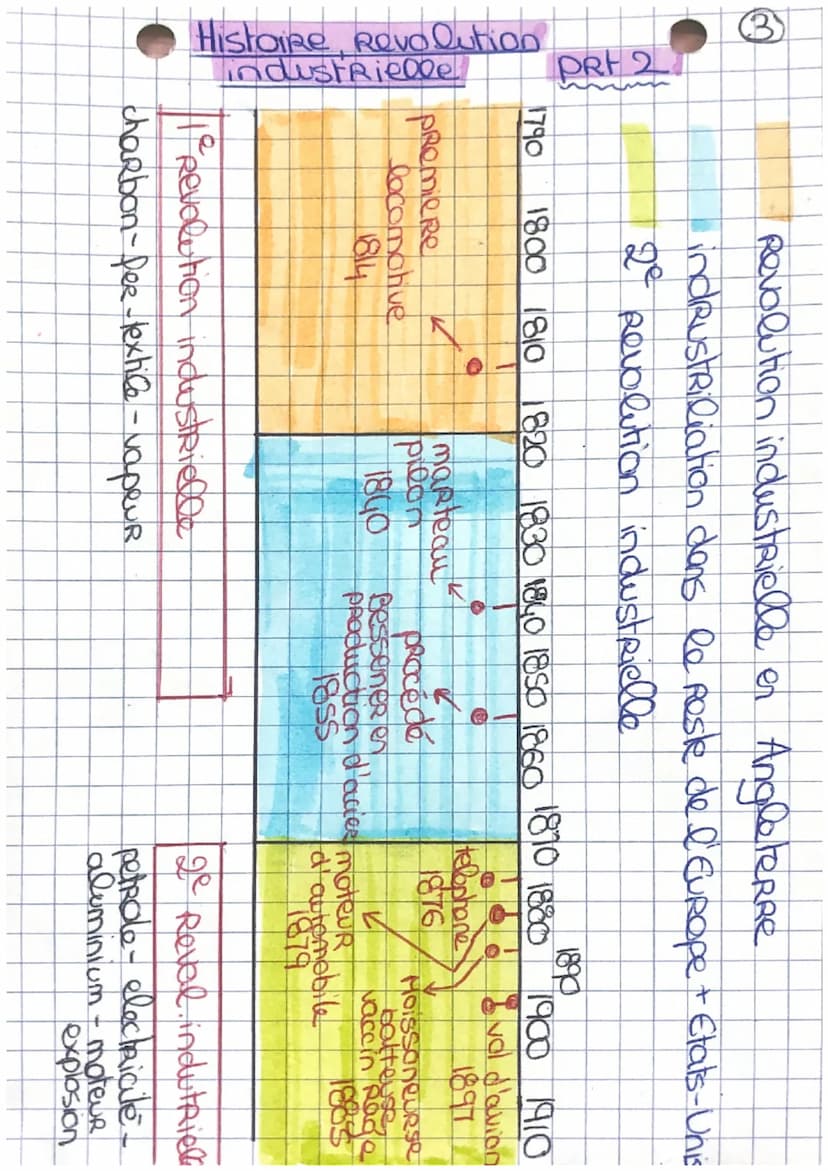 ③
Histoire, Revolution
industrielle
PRt 2
Revolution industrielle en Angleterre
indrustriliation dans le reste de l'Europe + Etats-Unis
2e revolution industrielle
1790 1800 1810 1820 1830 1840 1850 1860 1870 1880 1890 1900 1910
premiere
locomotive
1814
marteau
pilon
1840
procédé
Bessemer en
production d'acier
1855
telephone
1876
moteur
d'automobile
1879
Moissoneuse
batteuse
vaccin Rage
1885
vol d'avion
1897
1e revolution industrielle
charbon - fer - textile - vapeur
2e Revol. indutriell
petrole - electricité -
aluminium - moteur
explosion